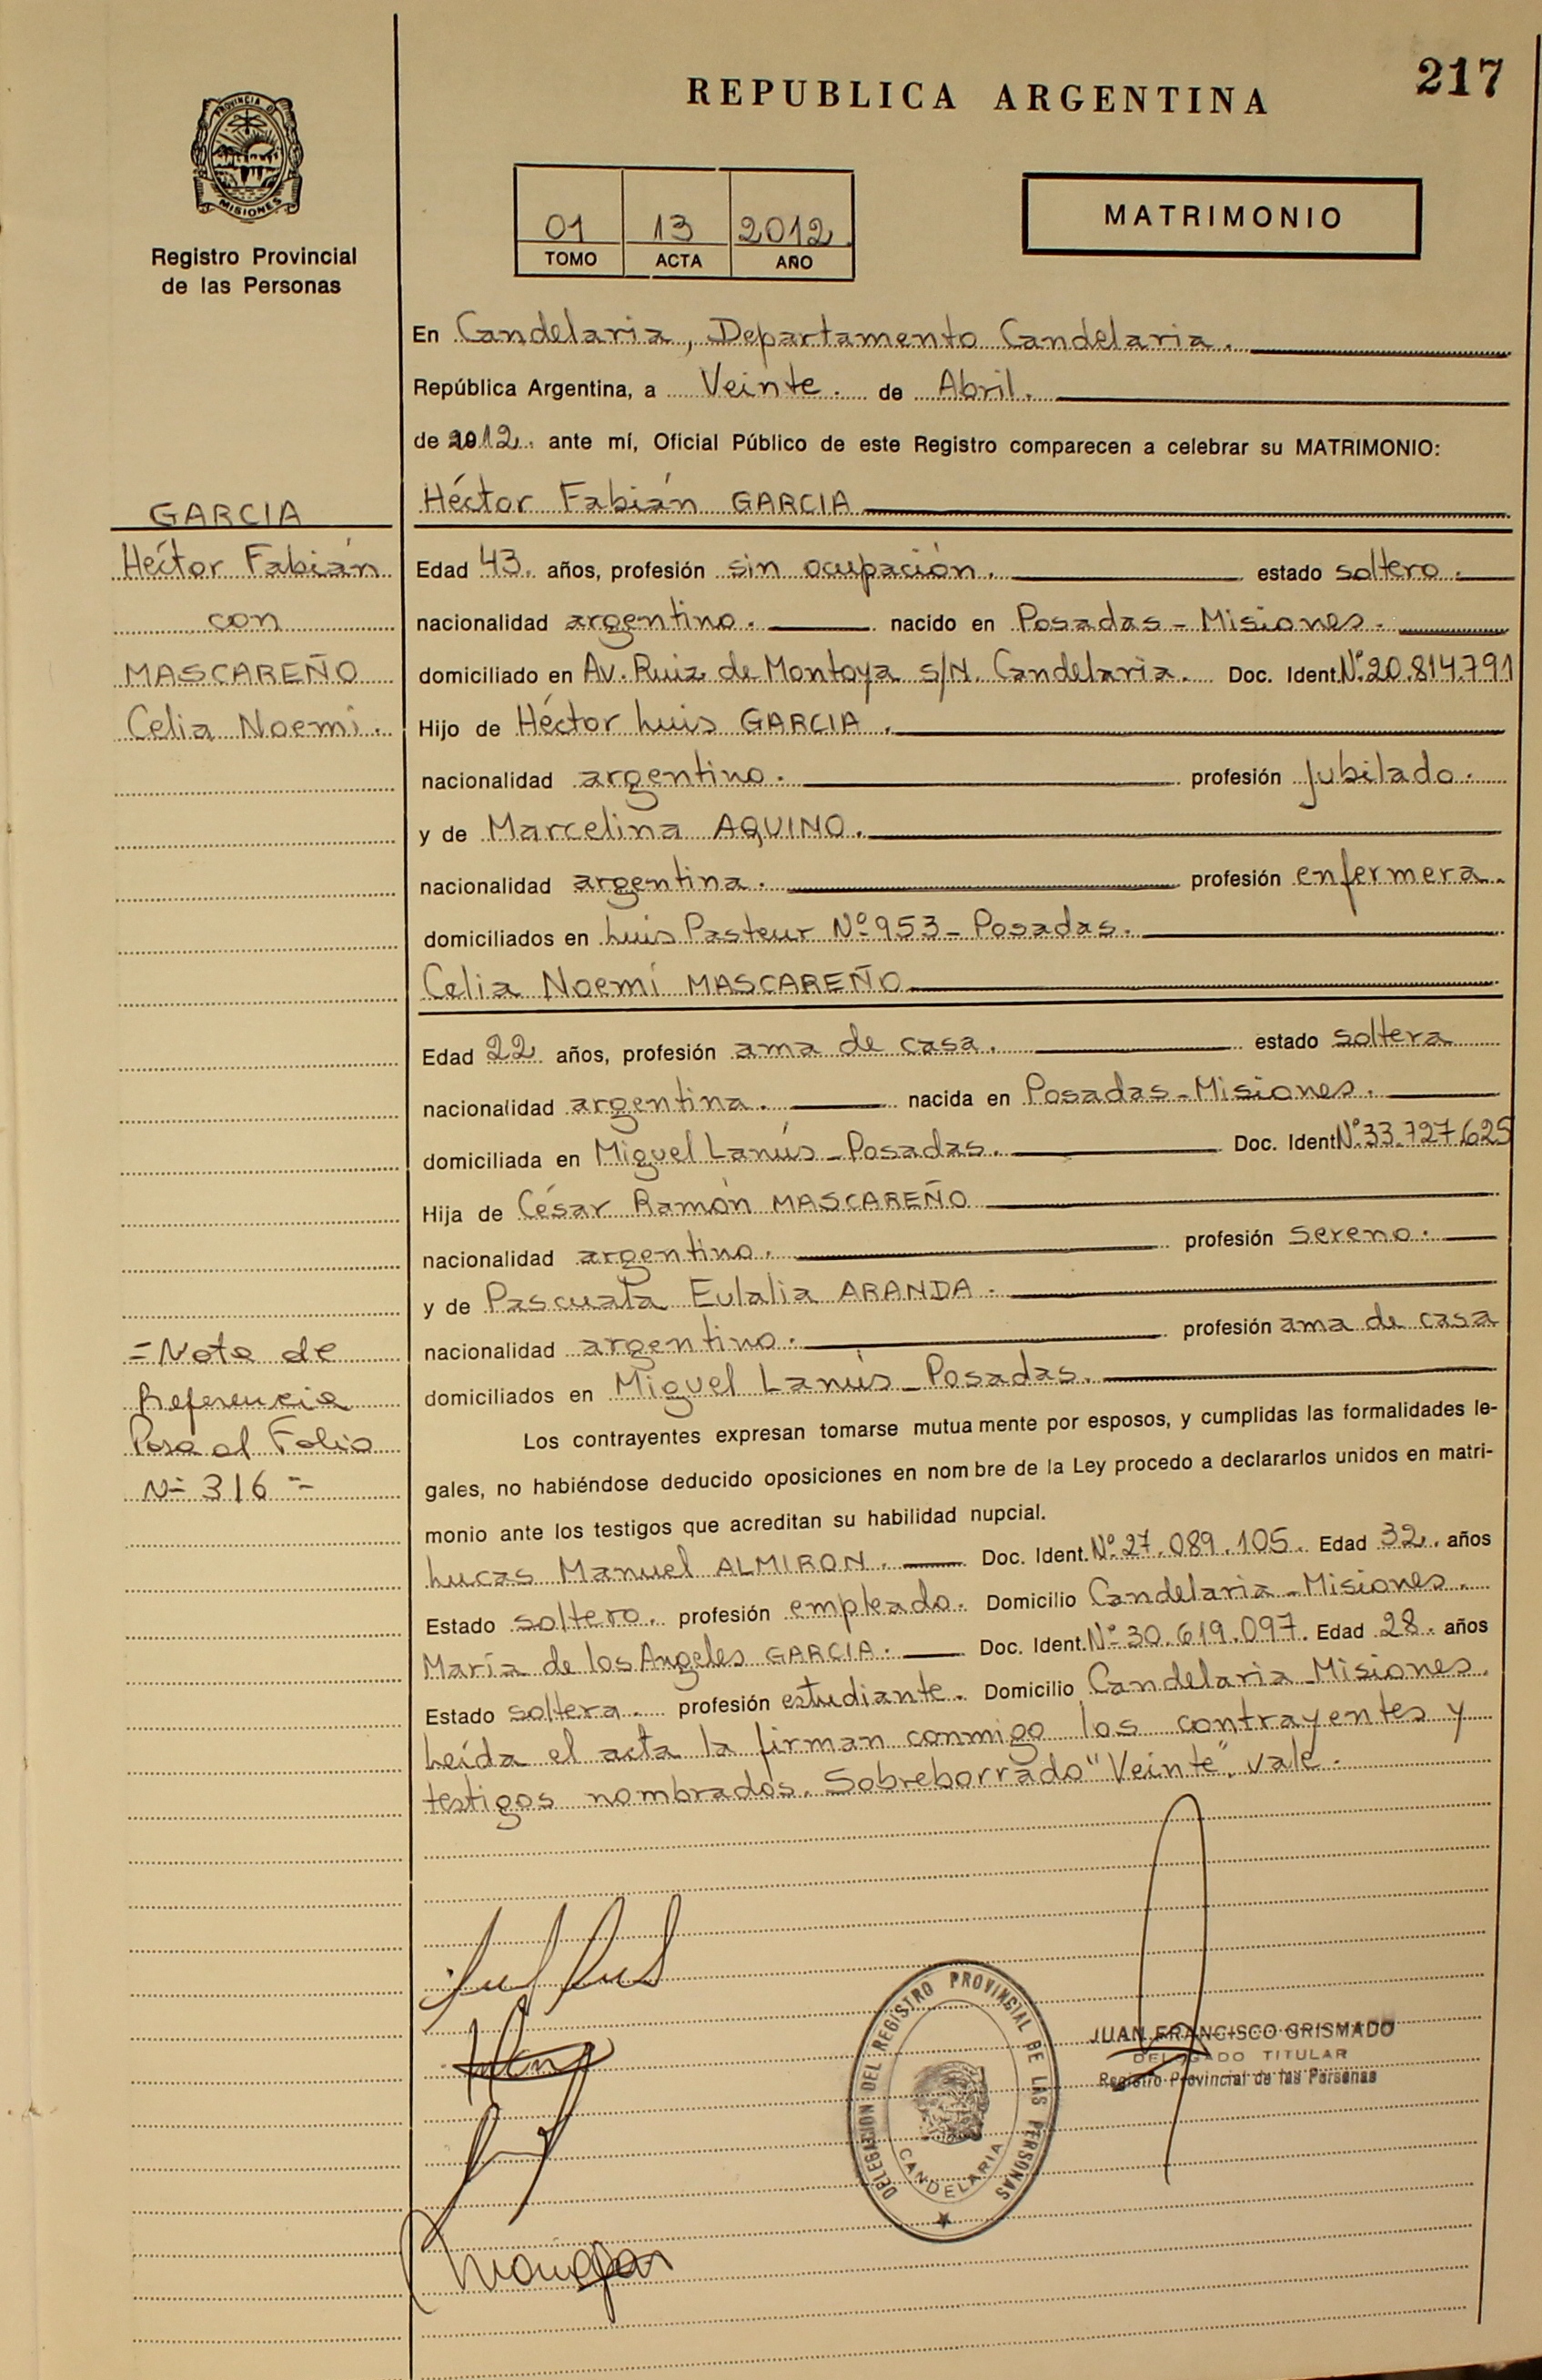 217
REPUBLICA ARGENTINA
PROVINCIA DE
MISIONES
Registro Provincial
de las Personas
01 13 2012
TOMO ACTA AÑO
MATRIMONIO
En Candelaria, Departamento Candelaria.
República Argentina, a Veinte. de Abril.
de 2012. ante mí, Oficial Público de este Registro comparecen a celebrar su MATRIMONIO:
Héctor Fabián GARCIA
GARCIA
Héctor Fabián
con
MASCAREÑO
Celia Noemí.
Edad 43. años, profesión sin ocupación. estado soltero.
nacionalidad argentino. nacido en Posadas - Misiones.
domiciliado en Av. Ruiz de Montoya s/N. Candelaria. Doc. Ident. Nº 20.814.791
Hijo de Héctor Luis GARCIA.
nacionalidad argentino. profesión jubilado.
y de Marcelina AQUINO.
nacionalidad argentina. profesión enfermera.
domiciliados en Luis Pasteur Nº 953 - Posadas.
Celia Noemí MASCAREÑO
Edad 22 años, profesión ama de casa. estado soltera
nacionalidad argentina. nacida en Posadas - Misiones.
domiciliada en Miguel Lanús - Posadas. Doc. Ident Nº 33.727.625
Hija de César Ramón MASCAREÑO
nacionalidad argentino. profesión sereno.
y de Pascuala Eulalia ARANDA.
nacionalidad argentino. profesión ama de casa
domiciliados en Miguel Lanús - Posadas.
= Nota de
Referencia
Pasa al Folio
Nº 316 =
Los contrayentes expresan tomarse mutua mente por esposos, y cumplidas las formalidades le-
gales, no habiéndose deducido oposiciones en nom bre de la Ley procedo a declararlos unidos en matri-
monio ante los testigos que acreditan su habilidad nupcial.
Lucas Manuel ALMIRON. Doc. Ident. Nº 27.089.105. Edad 32. años
Estado soltero. profesión empleado. Domicilio Candelaria - Misiones.
María de los Angeles GARCIA. Doc. Ident. Nº 30.619.097. Edad 28. años
Estado soltera. profesión estudiante. Domicilio Candelaria - Misiones.
Leída el acta la firman conmigo los contrayentes y
testigos nombrados. Sobreborrado "Veinte". vale.
DELEGACION DEL REGISTRO PROVINCIAL DE LAS PERSONAS
CANDELARIA
JUAN FRANCISCO GRISMADO
DELEGADO TITULAR
Registro Provincial de las Personas